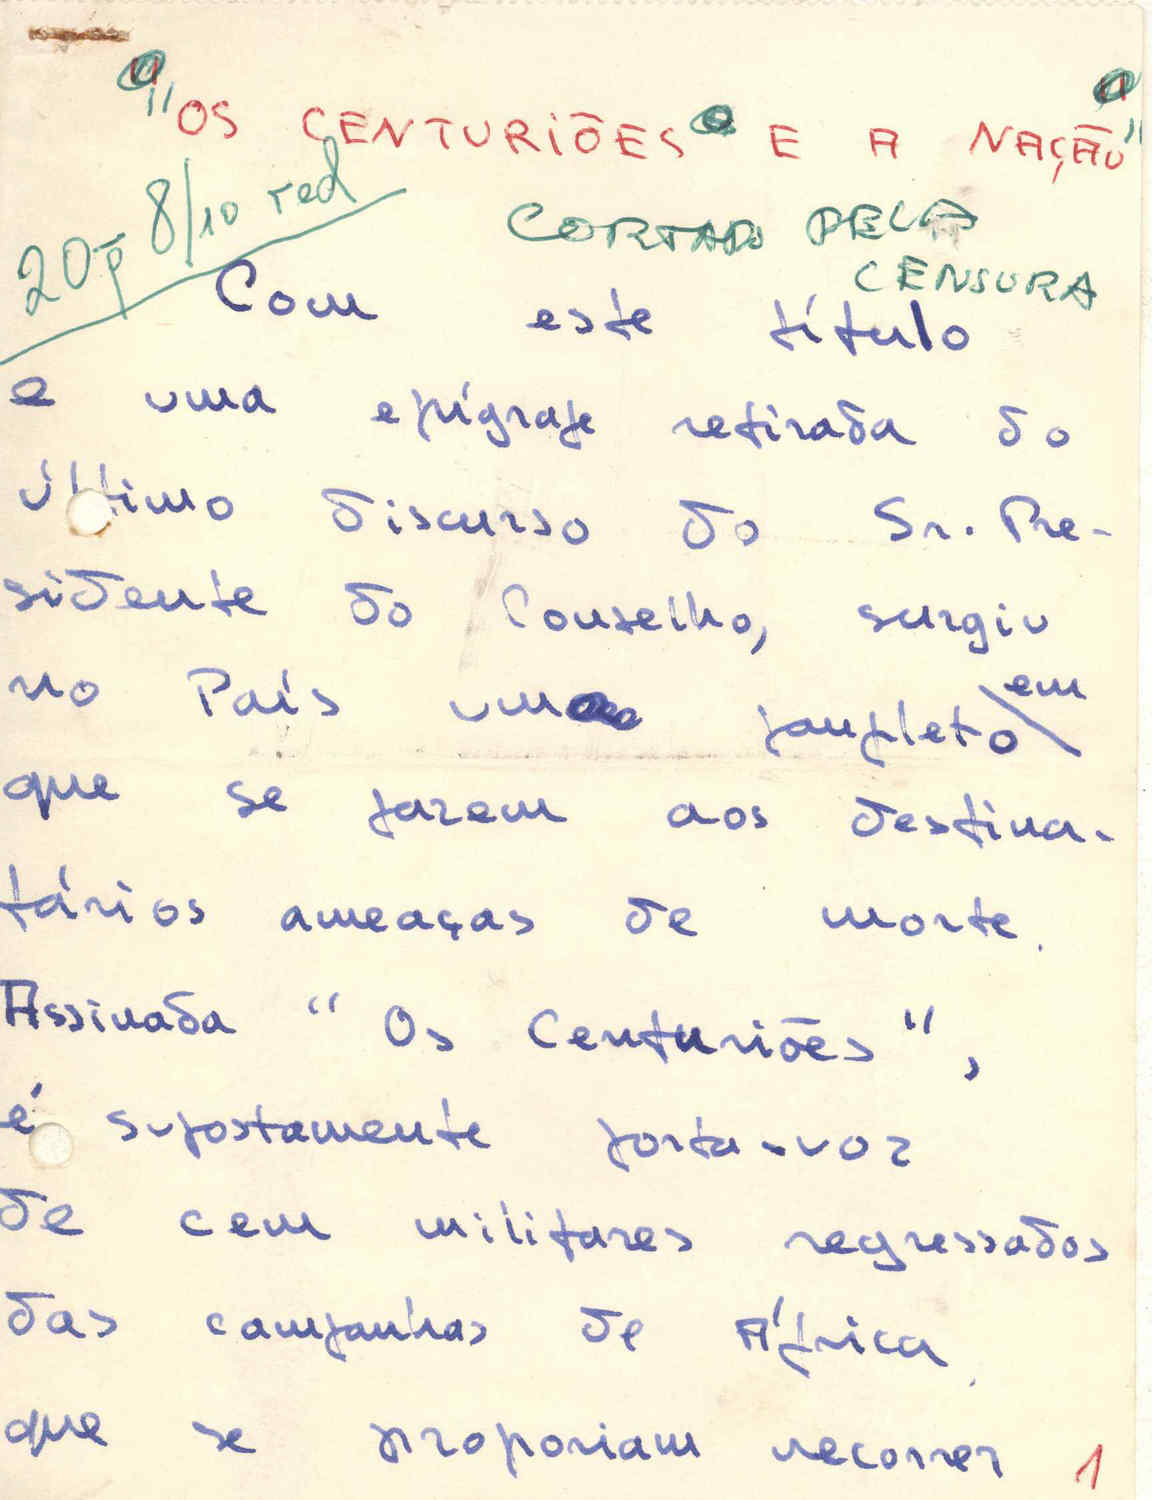 "OS CENTURIÕES E A NAÇÃO"
20p 8/10 red
CORTADO PELA
CENSURA
Com este título
e uma epígrafe retirada do
último discurso do Sr. Pre-
sidente do Conselho, surgiu
no País um panfleto em
que se fazem aos destina-
tários ameaças de morte.
Assinada "Os Centuriões",
é supostamente porta-voz
de cem militares regressados
das campanhas de África,
que se proporiam recorrer
1